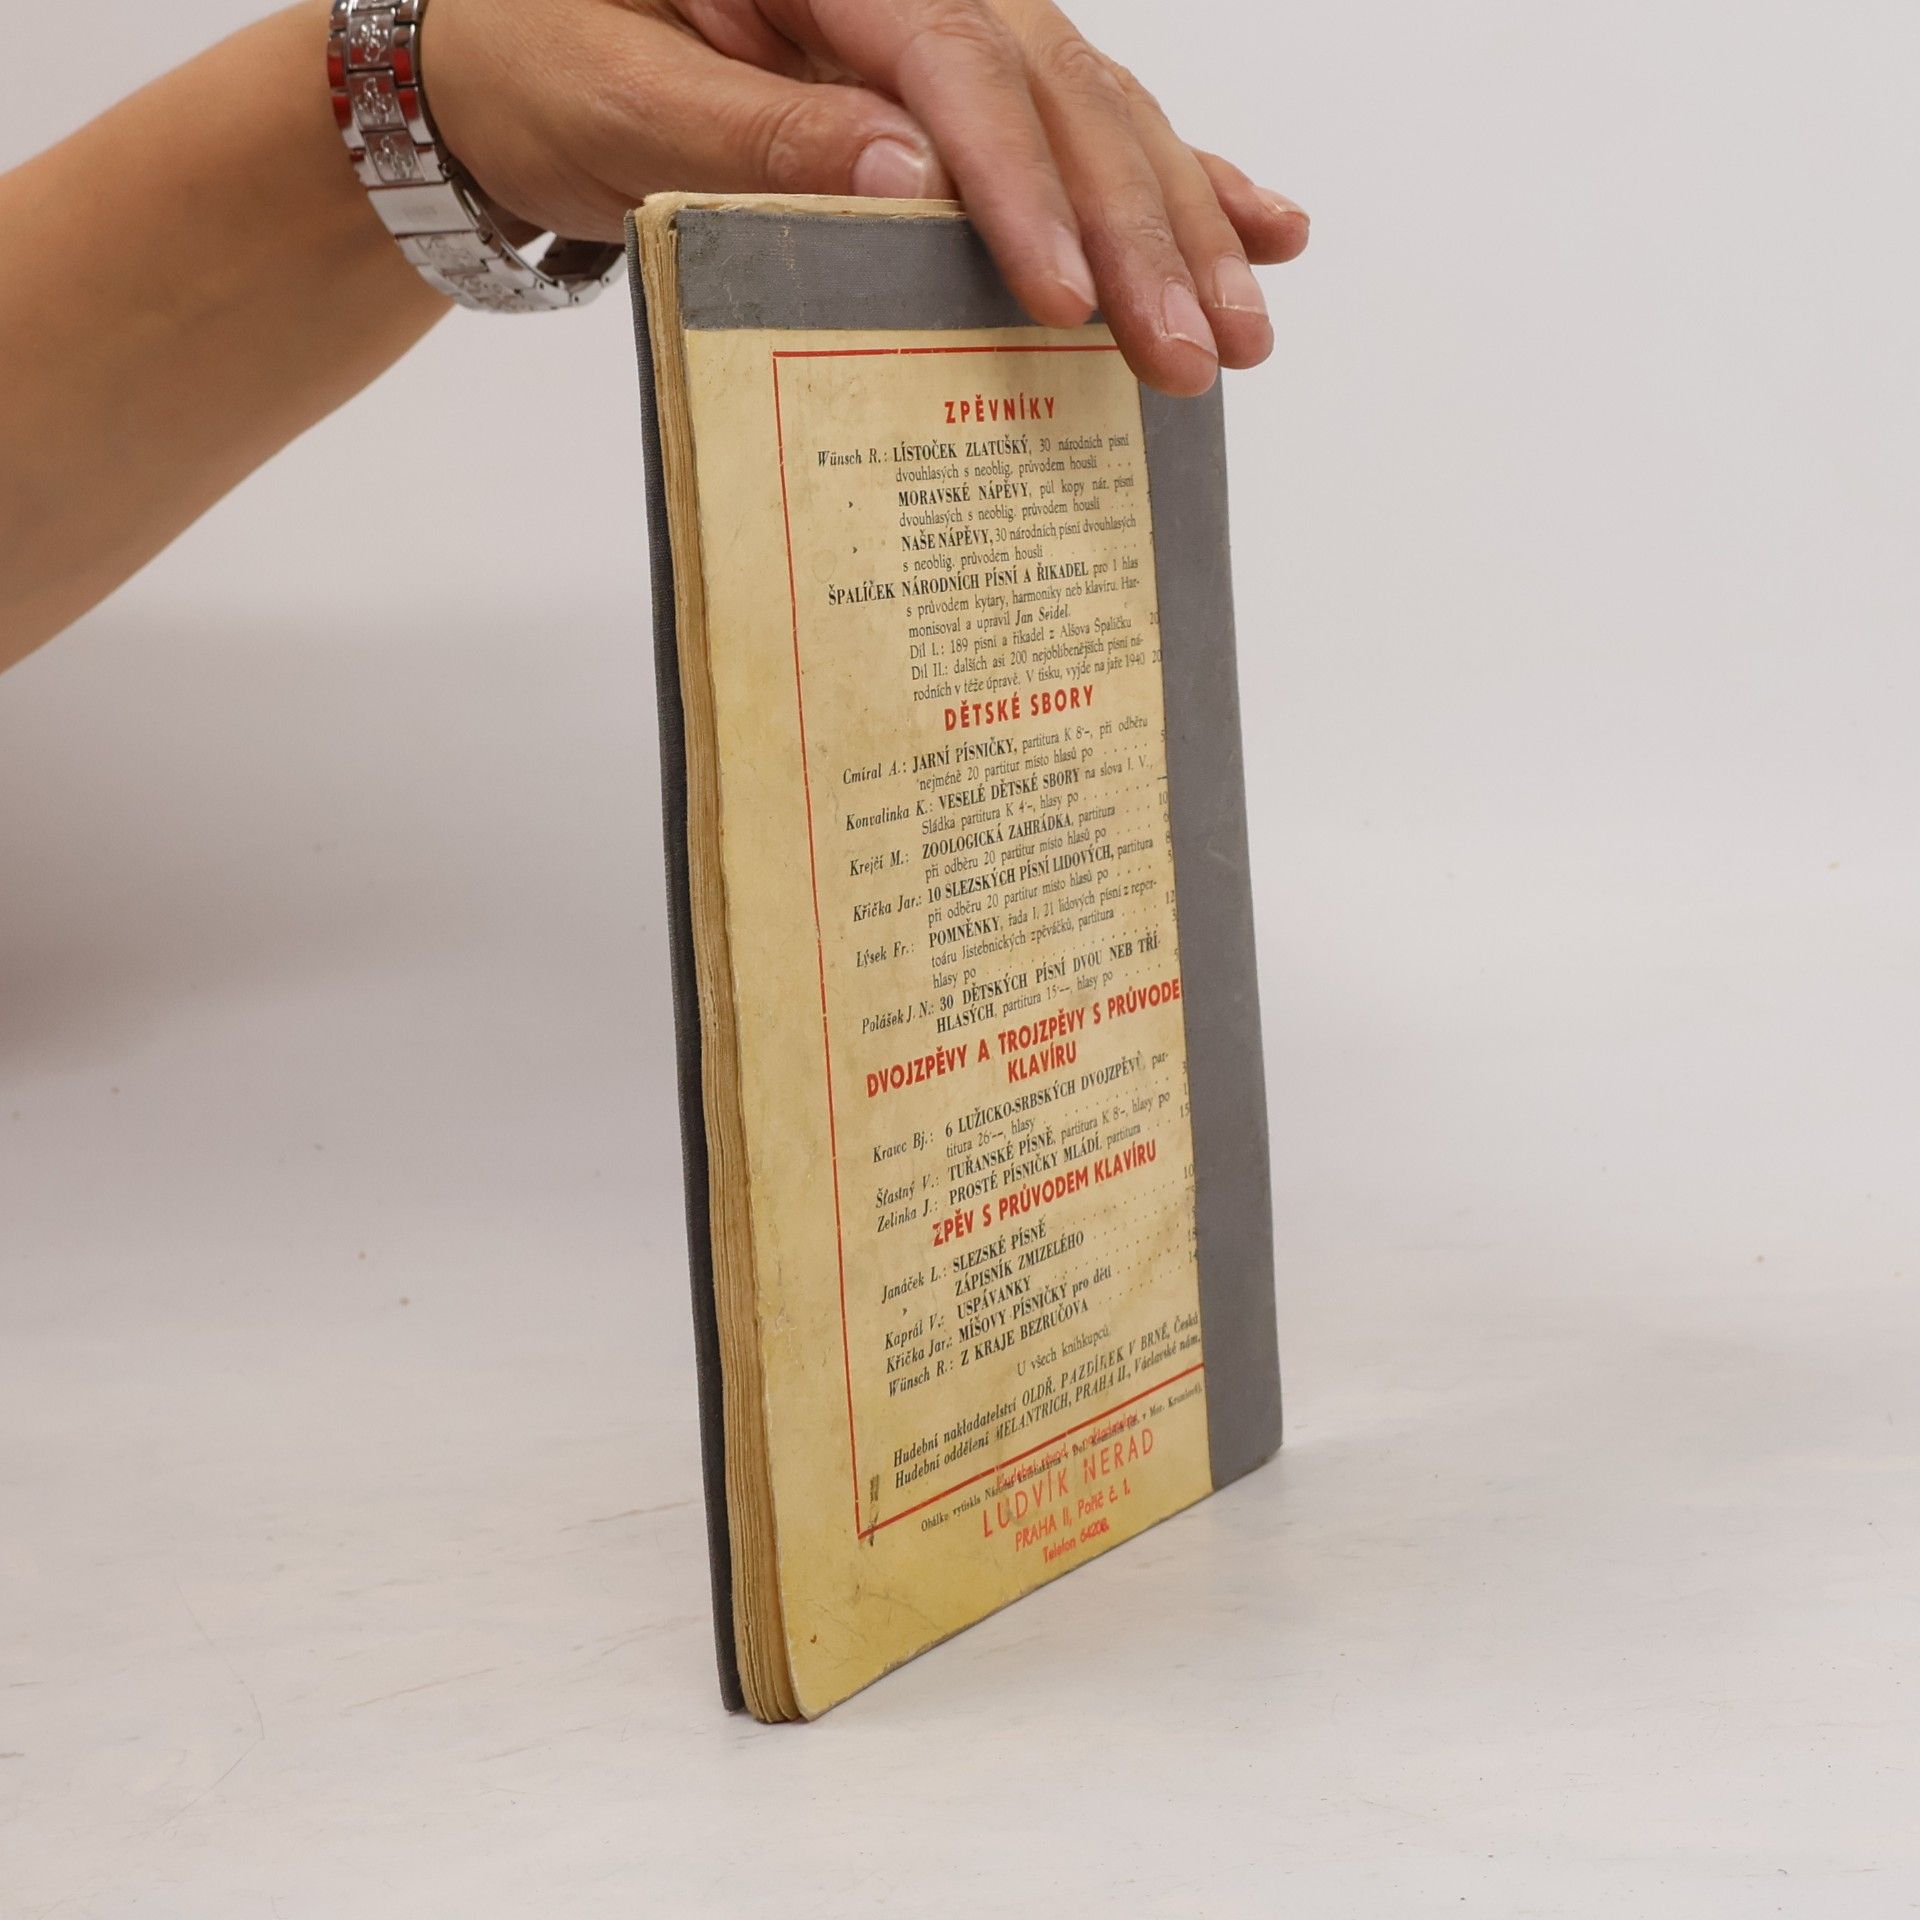 ZPĚVNÍKY
Wünsch R.: LÍSTOČEK ZLATUŠKÝ, 30 národních písní
dvouhlasých s neoblig. průvodem houslí . . .
» MORAVSKÉ NÁPĚVY, půl kopy nár. písní
dvouhlasých s neoblig. průvodem houslí . . .
» NAŠE NÁPĚVY, 30 národních písní dvouhlasých
s neoblig. průvodem houslí . . . . . . . .
ŠPALÍČEK NÁRODNÍCH PÍSNÍ A ŘIKADEL pro 1 hlas
s průvodem kytary, harmoniky neb klavíru. Har-
monisoval a upravil Jan Seidel.
Díl I.: 189 písní a řikadel z Alšova Špalíčku 20
Díl II.: dalších asi 200 nejoblíbenějších písní ná-
rodních v téže úpravě. V tisku, vyjde na jaře 1940 20
DĚTSKÉ SBORY
Cmíral A.: JARNÍ PÍSNIČKY, partitura K 8·–, při odběru
nejméně 20 partitur místo hlasů po . . . . . 5
Konvalinka K.: VESELÉ DĚTSKÉ SBORY na slova J. V.
Sládka partitura K 4·–, hlasy po . . . . . . .
Krejčí M.: ZOOLOGICKÁ ZAHRÁDKA, partitura . . . 10
při odběru 20 partitur místo hlasů po . . . . . 6
Křička Jar.: 10 SLEZSKÝCH PÍSNÍ LIDOVÝCH, partitura 8
při odběru 20 partitur místo hlasů po . . . . . 5
Lýsek Fr.: POMNĚNKY, řada I. 21 lidových písní z reper-
toáru Jistebnických zpěváčků, partitura . . . . 12
hlasy po . . . . . . . . . . . . 3
Polášek J. N.: 30 DĚTSKÝCH PÍSNÍ DVOU NEB TŘÍ-
HLASÝCH, partitura 15·––, hlasy po . . . . . 5
DVOJZPĚVY A TROJZPĚVY S PRŮVODE
KLAVÍRU
Krawc Bj.: 6 LUŽICKO-SRBSKÝCH DVOJZPĚVŮ, par-
titura 26·––, hlasy . . . . . . . . . . 3
Šťastný V.: TUŘANSKÉ PÍSNĚ, partitura K 8·–, hlasy po 1
Zelinka J.: PROSTÉ PÍSNIČKY MLÁDÍ, partitura . . . . 15
ZPĚV S PRŮVODEM KLAVÍRU
Janáček L.: SLEZSKÉ PÍSNĚ . . . . . . . . . 10
» ZÁPISNÍK ZMIZELÉHO . . . . . . .
Kaprál V.: USPÁVANKY . . . . . . . . .
Křička Jar.: MÍŠOVY PÍSNIČKY pro děti . . . . . . 18
Wünsch R.: Z KRAJE BEZRUČOVA . . . . . . . 14
U všech knihkupců.
Hudební nakladatelství OLDŘ. PAZDÍREK V BRNĚ, Česká
Hudební oddělení MELANTRICH, PRAHA II., Václavské nám.
Obálku vytiskla
v Mor. Krumlově).
LUDVÍK NERAD
PRAHA II, Poříč č. 1.
Telefon 64208.